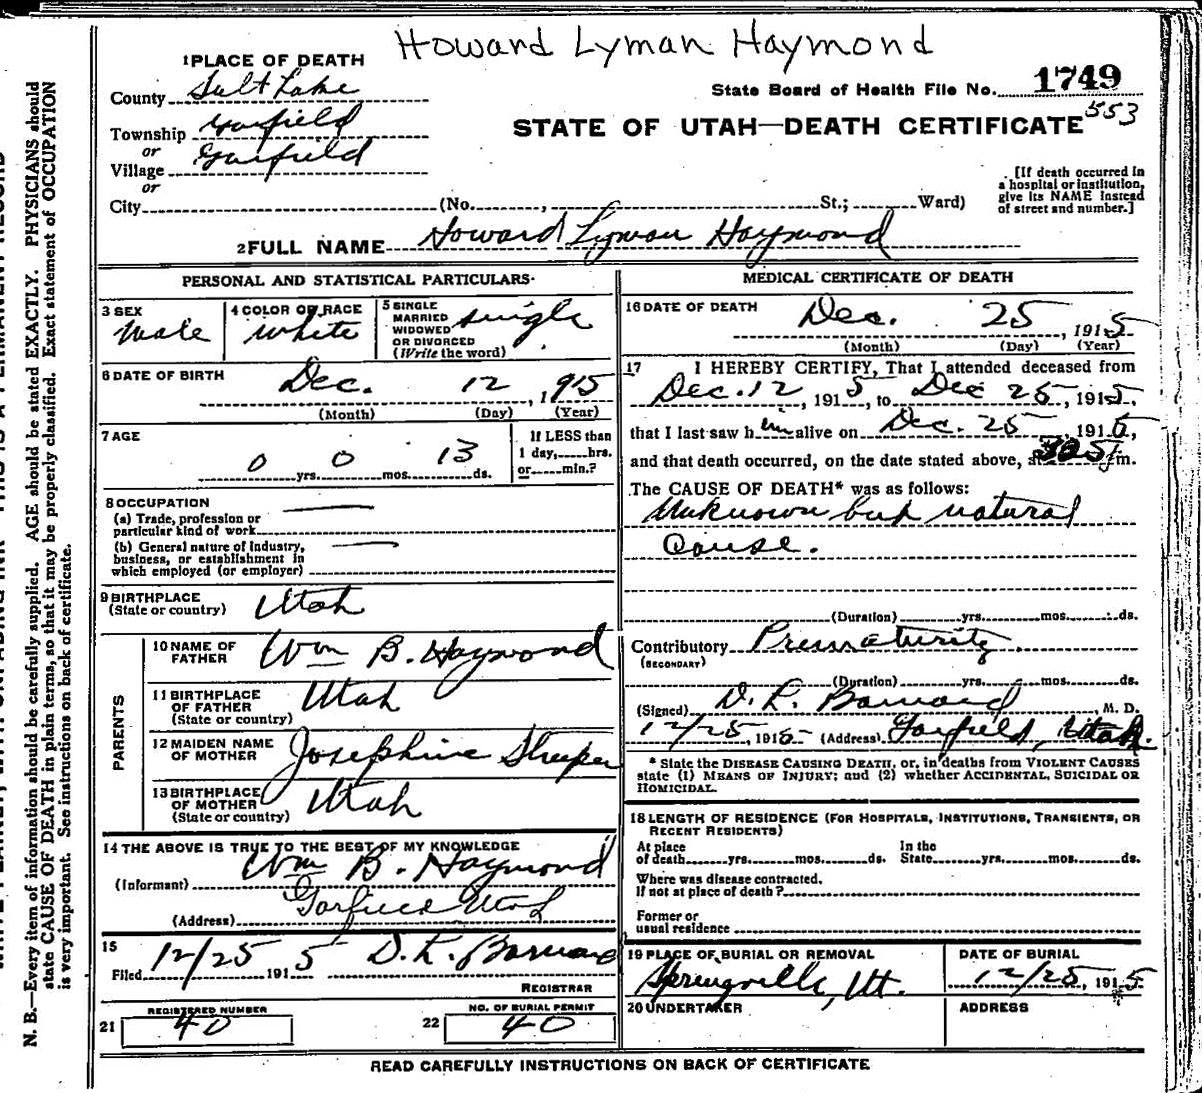 Howard Lyman Haymond
1 PLACE OF DEATH
State Board of Health File No. 1749
553
County Salt Lake
STATE OF UTAH—DEATH CERTIFICATE
Township Garfield
or
Village Garfield
or
City (No. , St.; Ward)
[If death occurred in
a hospital or institution,
give its NAME instead
of street and number.]
2 FULL NAME Howard Lyman Haymond
PERSONAL AND STATISTICAL PARTICULARS
3 SEX
Male
4 COLOR OR RACE
white
5 SINGLE
MARRIED
WIDOWED
OR DIVORCED
(Write the word)
single
6 DATE OF BIRTH
Dec. 12, 1915
(Month) (Day) (Year)
7 AGE
0 yrs. 0 mos. 13 ds.
If LESS than
1 day, hrs.
or min.?
8 OCCUPATION
(a) Trade, profession or
particular kind of work
(b) General nature of industry,
business, or establishment in
which employed (or employer)
9 BIRTHPLACE
(State or country) Utah
PARENTS
10 NAME OF
FATHER Wm B. Haymond
11 BIRTHPLACE
OF FATHER
(State or country) Utah
12 MAIDEN NAME
OF MOTHER Josephine Streeper
13 BIRTHPLACE
OF MOTHER
(State or country) Utah
14 THE ABOVE IS TRUE TO THE BEST OF MY KNOWLEDGE
(Informant) Wm B. Haymond
(Address) Garfield Utah
15
Filed 12/25 1915 D. L. Barnard
REGISTRAR
21 REGISTERED NUMBER
40
22 NO. OF BURIAL PERMIT
40
MEDICAL CERTIFICATE OF DEATH
16 DATE OF DEATH
Dec. 25, 1915
(Month) (Day) (Year)
17 I HEREBY CERTIFY, That I attended deceased from
Dec. 12, 1915, to Dec 25, 1915,
that I last saw him alive on Dec. 25, 1915,
and that death occurred, on the date stated above, at m.
The CAUSE OF DEATH* was as follows:
Unknown but natural
Cause.
(Duration) yrs. mos. ds.
Contributory Prematurity.
(SECONDARY)
(Duration) yrs. mos. ds.
(Signed) D. L. Barnard, M. D.
12/25, 1915 (Address) Garfield, Utah.
* State the DISEASE CAUSING DEATH, or, in deaths from VIOLENT CAUSES
state (1) MEANS OF INJURY; and (2) whether ACCIDENTAL, SUICIDAL OR
HOMICIDAL.
18 LENGTH OF RESIDENCE (FOR HOSPITALS, INSTITUTIONS, TRANSIENTS, OR
RECENT RESIDENTS)
At place
of death yrs. mos. ds.
In the
State yrs. mos. ds.
Where was disease contracted,
If not at place of death?
Former or
usual residence
19 PLACE OF BURIAL OR REMOVAL
Springville, Ut.
DATE OF BURIAL
12/25, 1915
20 UNDERTAKER
ADDRESS
READ CAREFULLY INSTRUCTIONS ON BACK OF CERTIFICATE
N. B.—Every item of information should be carefully supplied. AGE should be stated EXACTLY. PHYSICIANS should
state CAUSE OF DEATH in plain terms, so that it may be properly classified. Exact statement of OCCUPATION
is very important. See instructions on back of certificate.